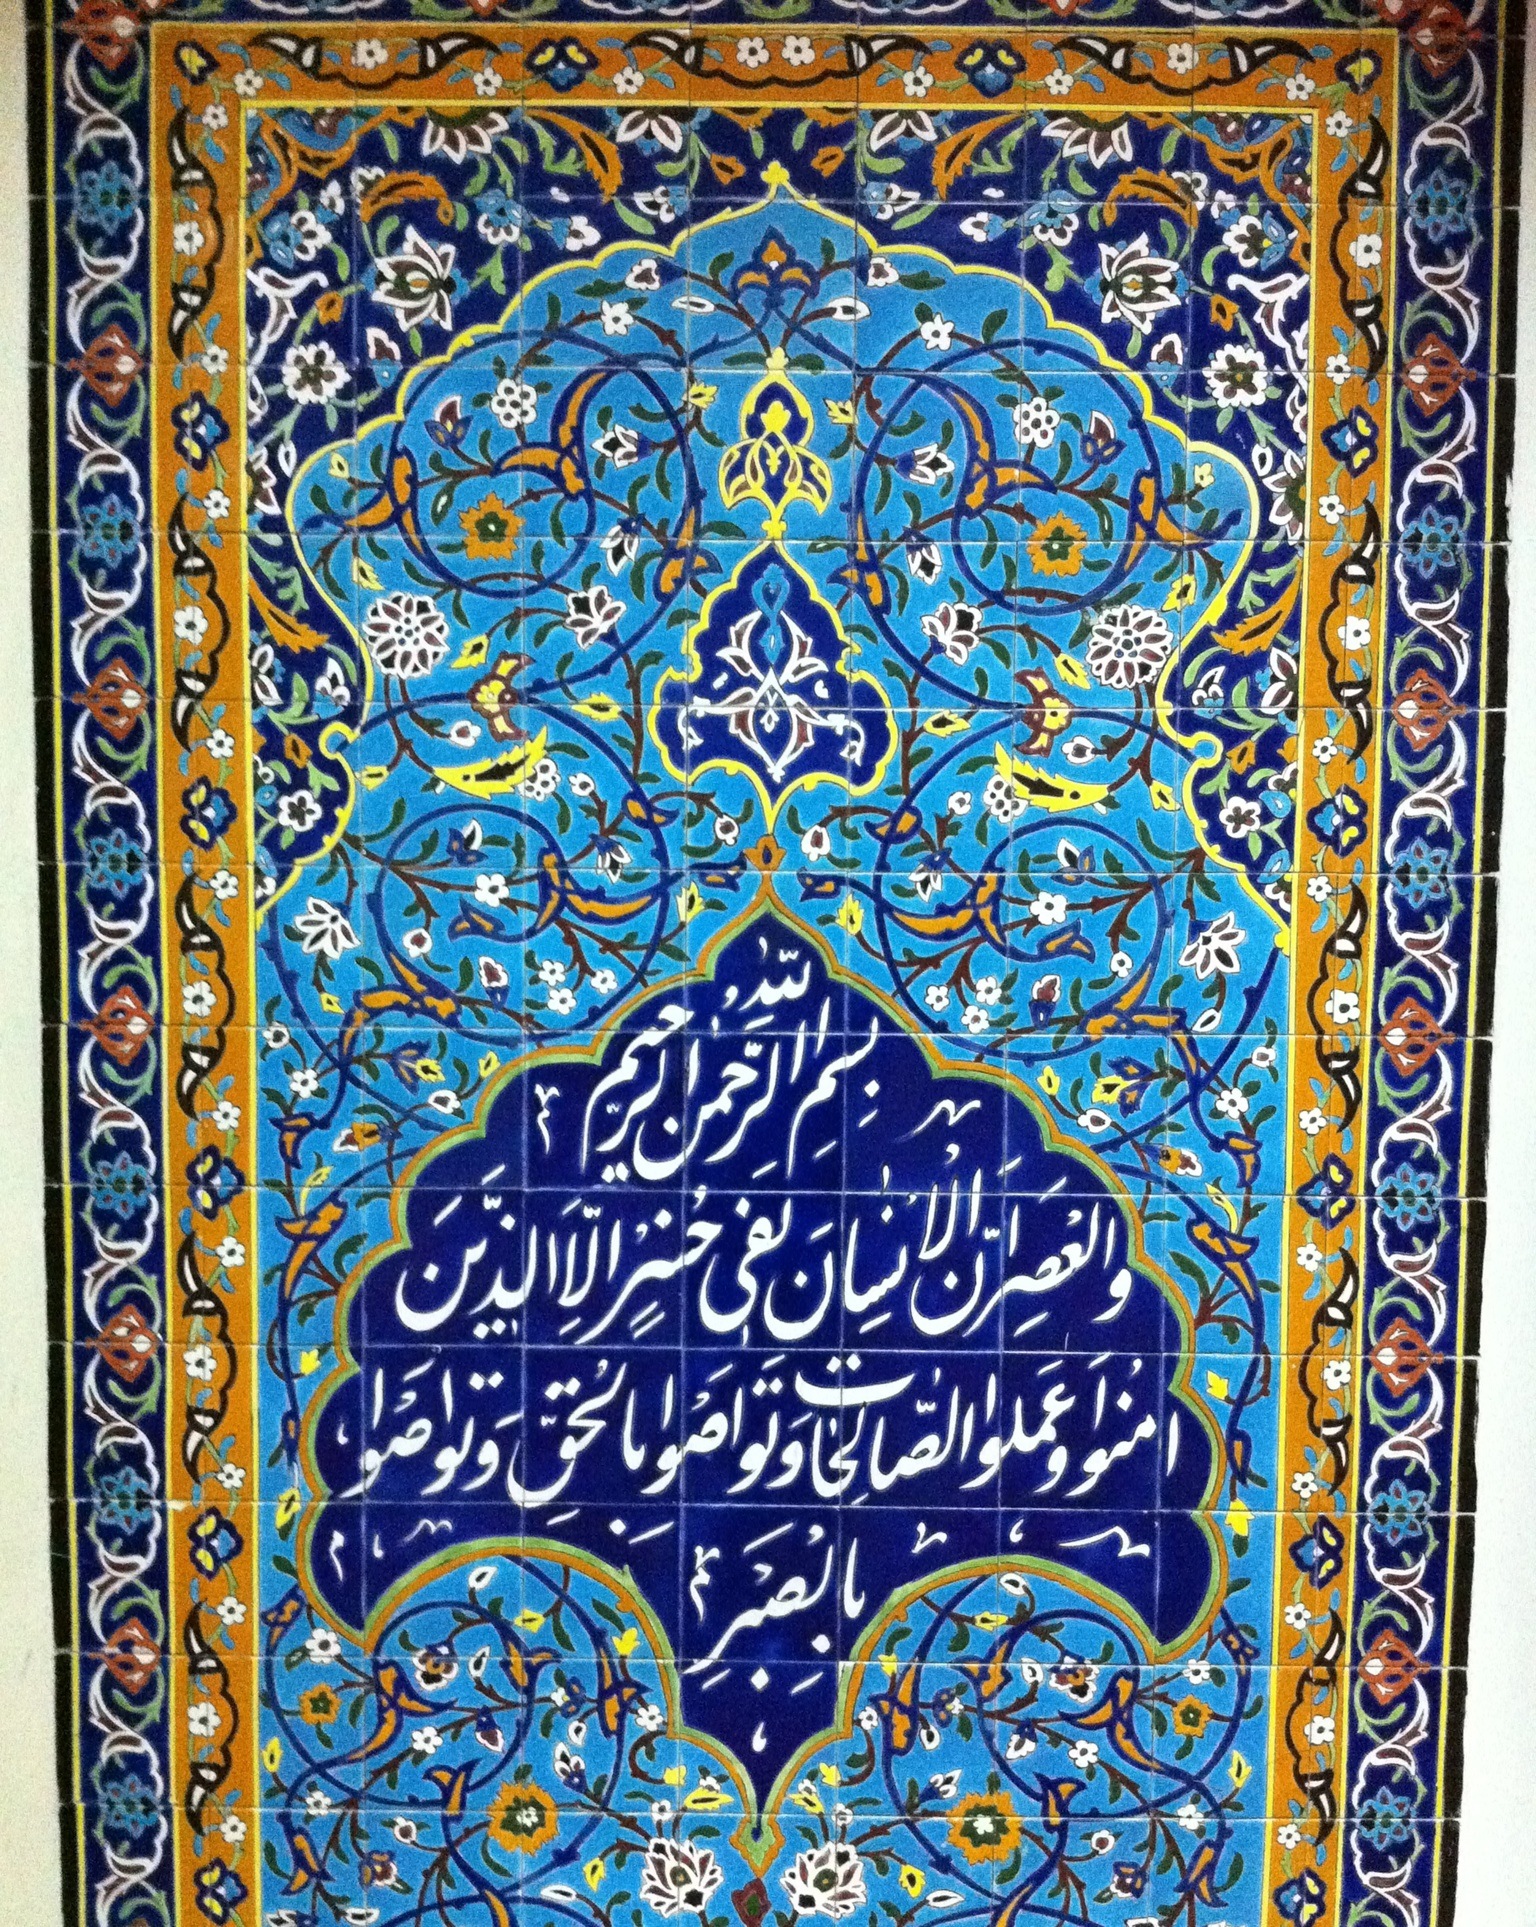 بِسْمِ اللّهِ الرَّحْمنِ الرَّحیمِ
وَالْعَصْرِ اِنَّ الْاِنْسانَ لَفی خُسْرٍ اِلاَّ الَّذینَ
امَنُوا وَ عَمِلُوا الصّالِحاتِ وَتَواصَوْا بِالْحَقِّ وَ تَواصَوْا
بِالصَّبْرِ